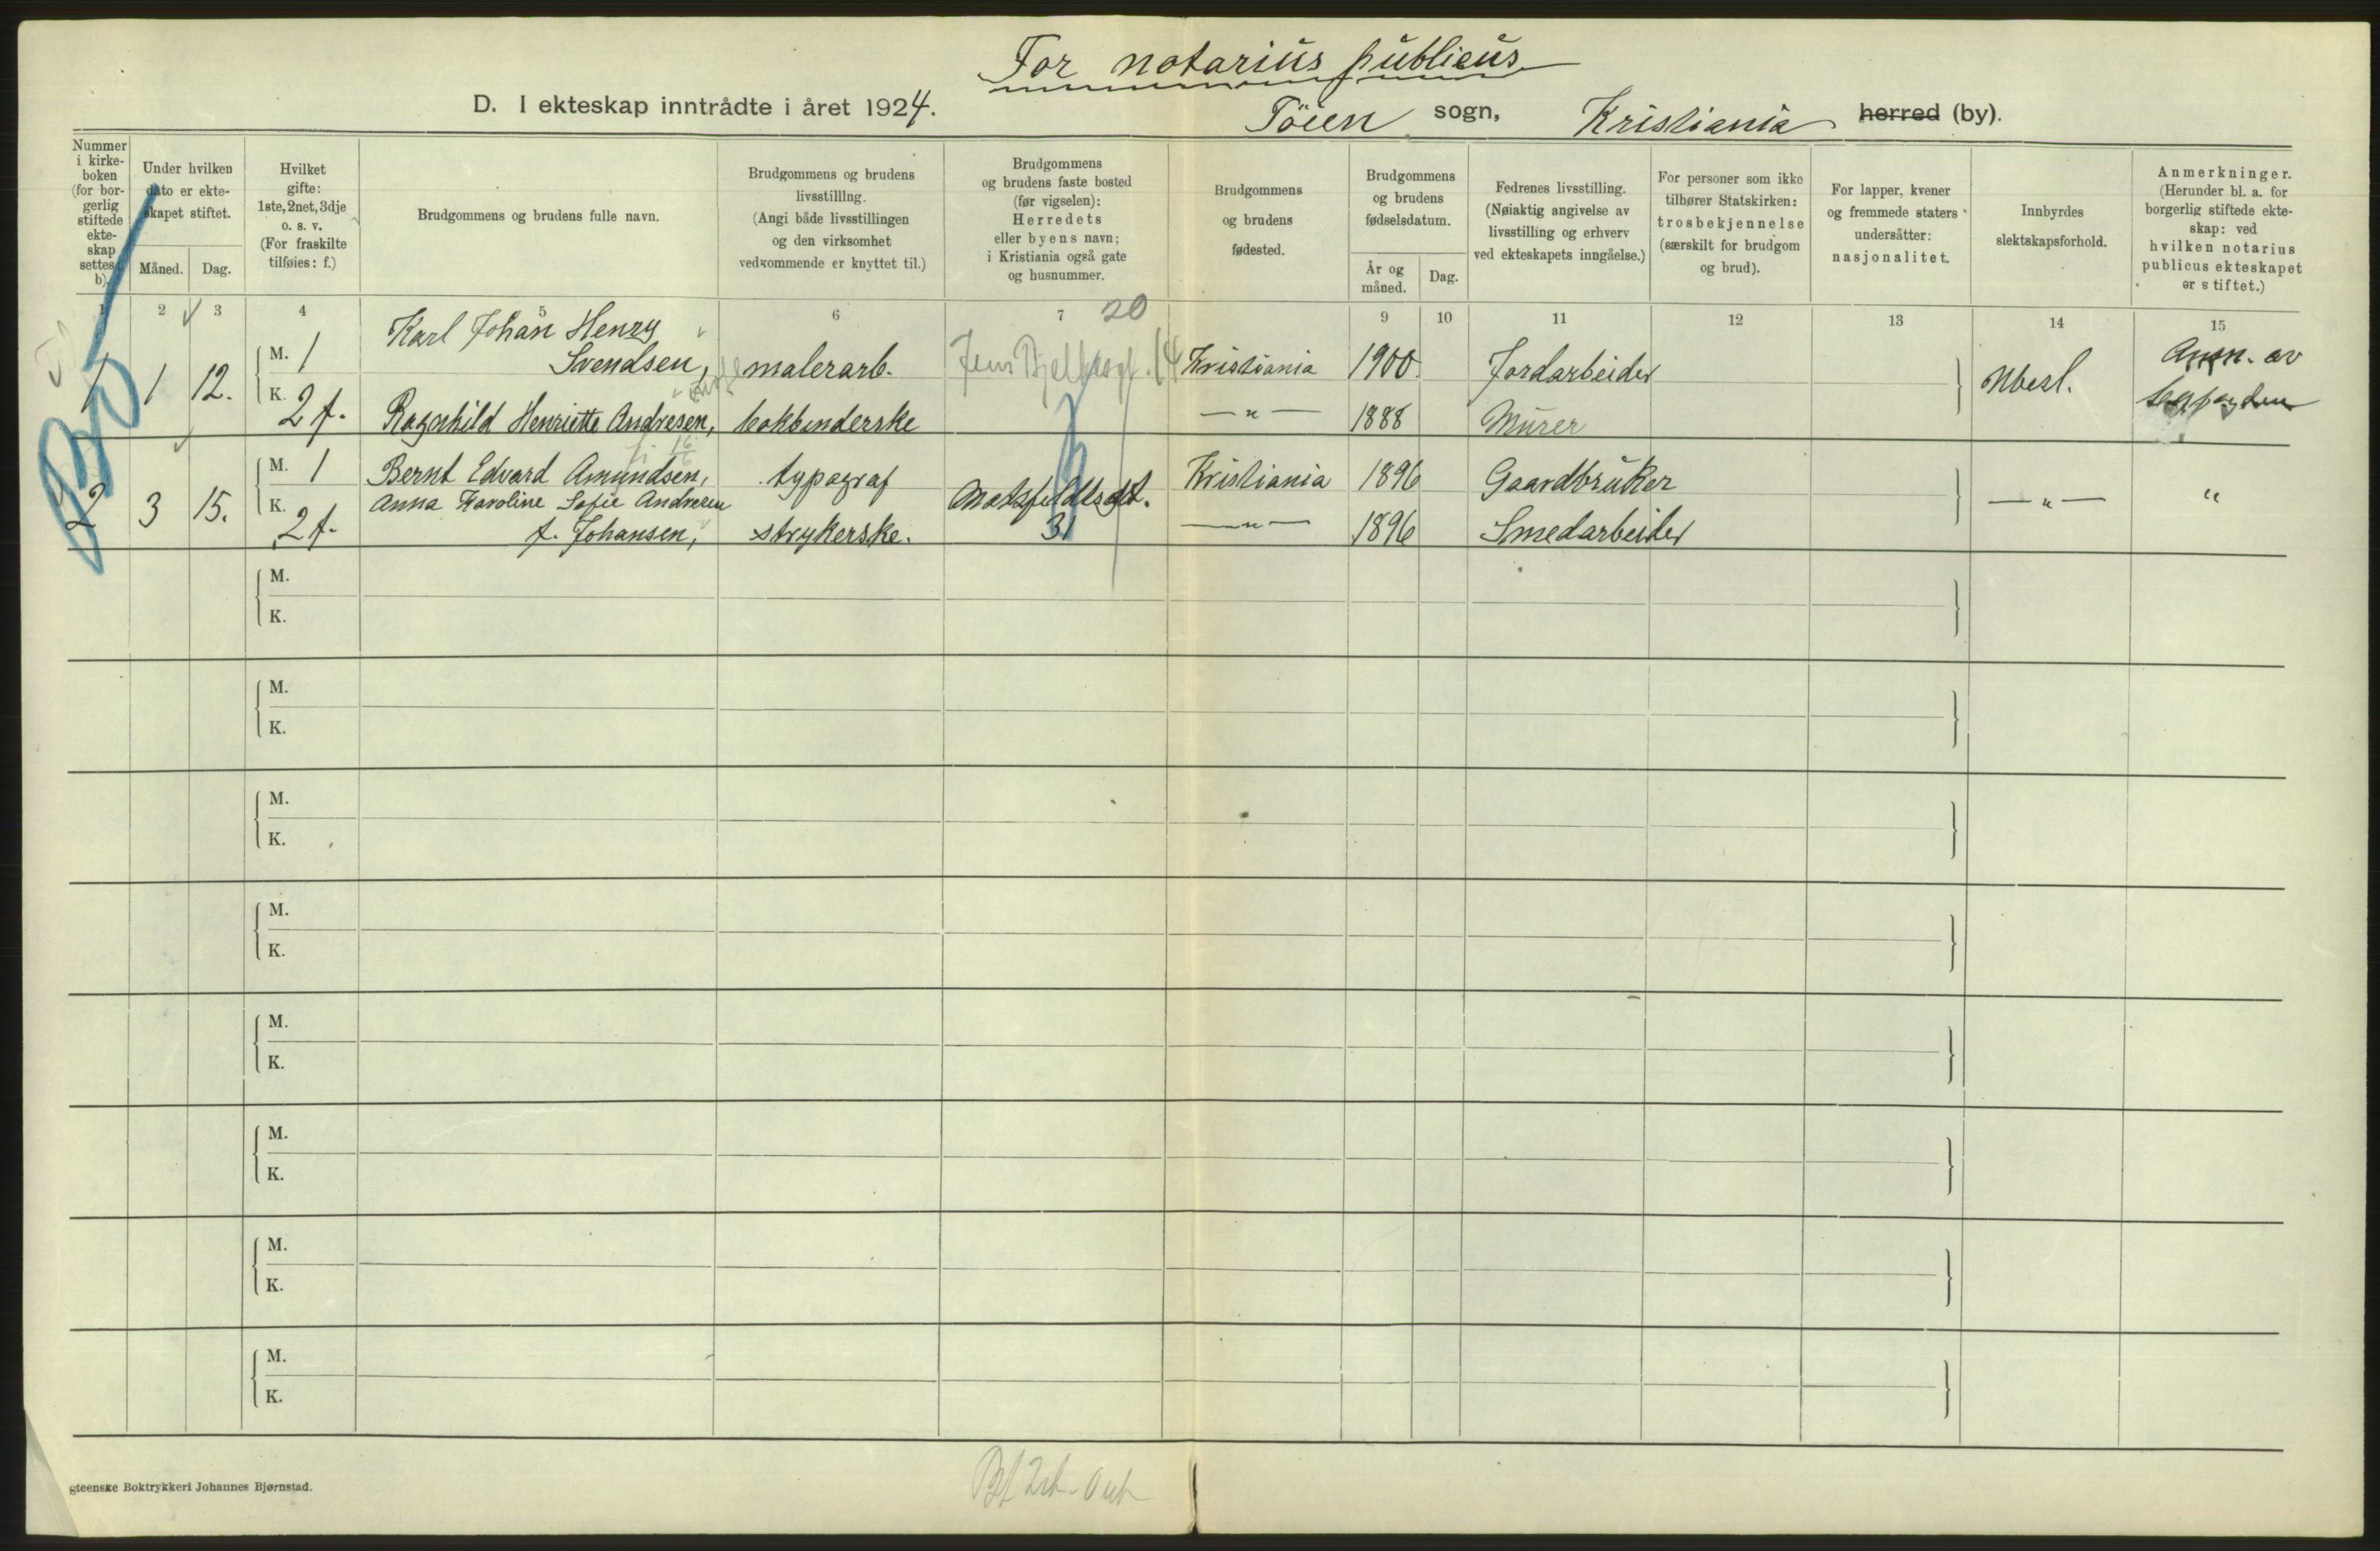 For notarius publicus
D. I ekteskap inntrådte i året 1924.
Töien sogn, Kristiania herred (by).
Nummer i kirke-boken (for bor-gerlig stiftede ekte-skap settes b).
Under hvilken dato er ekte-skapet stiftet.
Måned. Dag.
Hvilket gifte: 1ste, 2net, 3dje o. s. v. (For fraskilte tilføies: f.)
Brudgommens og brudens fulle navn.
Brudgommens og brudens livsstilllng. (Angi både livsstillingen og den virksomhet vedkommende er knyttet til.)
Brudgommens og brudens faste bosted (før vigselen): Herredets eller byens navn; i Kristiania også gate og husnummer.
Brudgommens og brudens fødested.
Brudgommens og brudens fødselsdatum.
År og måned. Dag.
Fedrenes livsstilling. (Nøiaktig angivelse av livsstilling og erhverv ved ekteskapets inngåelse.)
For personer som ikke tilhører Statskirken: trosbekjennelse (særskilt for brudgom og brud).
For lapper, kvener og fremmede staters undersåtter: nasjonalitet.
Innbyrdes slektskapsforhold.
Anmerkninger. (Herunder bl. a. for borgerlig stiftede ekte-skap: ved hvilken notarius publicus ekteskapet er stiftet.)
1 2 3 4 5 6 7 20 9 10 11 12 13 14 15
1 1 12. M. 1 Karl Johan Henry Svendsen, malerarb. Jens Bjelkesgt. 14 Kristiania 1900 Jordarbeider Ubesl. Anm. av
K. 2 f. Ragnhild Henriette Andresen, bokbinderske — " — 1888 Murer
2 3 15. M. 1 Bernt Edvard Amundsen, typograf Kristiania 1896 Gaardbruker — " — "
K. 2 f. Anna Karoline Sofie Andresen f. Johansen, strykerske. 31 — " — 1896 Smedarbeider
M.
K.
M.
K.
M.
K.
M.
K.
M.
K.
M.
K.
M.
K.
M.
K.
gteenske Boktrykkeri Johannes Bjørnstad.